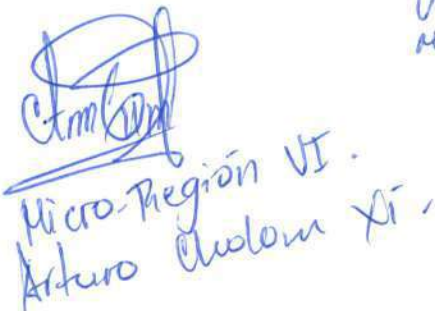 Micro-Región VI.
Arturo Cholom Xí.